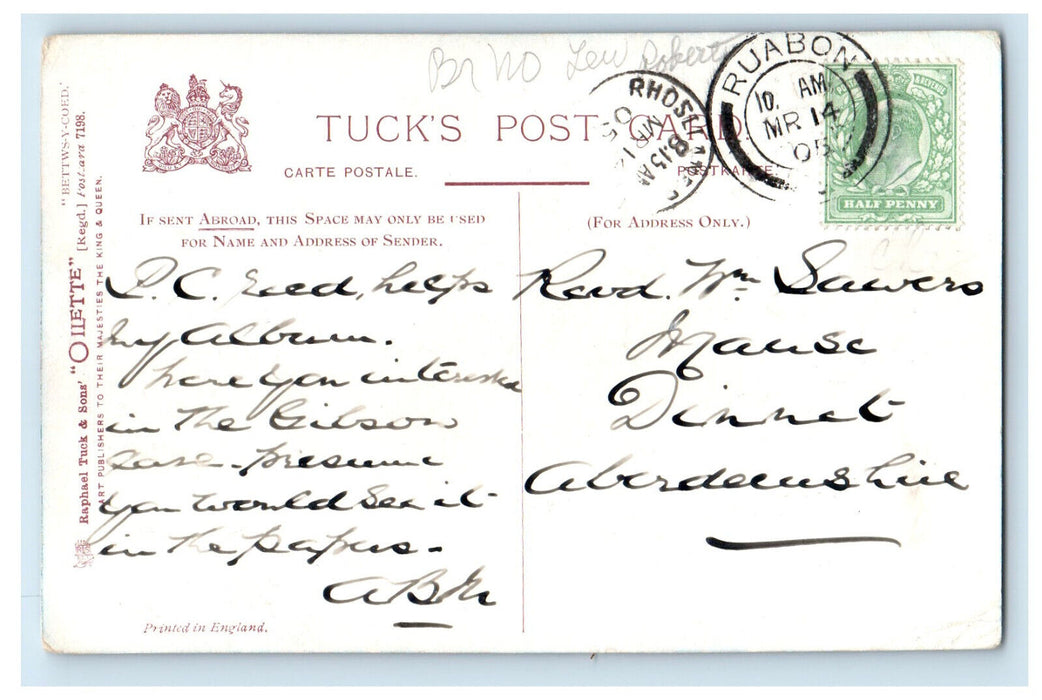 Br No Lew Roberts
TUCK'S POST CARD.
CARTE POSTALE. POSTKARTE.
RUABON
10. AM
MR 14
05
8.15 AM
MR 14
05
HALF PENNY
IF SENT ABROAD, THIS SPACE MAY ONLY BE USED
FOR NAME AND ADDRESS OF SENDER.
(FOR ADDRESS ONLY.)
P. C. Recd, helps
my album.
here you interested
in the Gibson
case - presume
you would see it
in the papers -
Revd. Wm Sawers
Manse
Dinnet
Aberdeenshire
"BETTWS-Y-COED."
Raphael Tuck & Sons' "OILETTE" [Regd.] Postcard 7198.
ART PUBLISHERS TO THEIR MAJESTIES THE KING & QUEEN.
Printed in England.